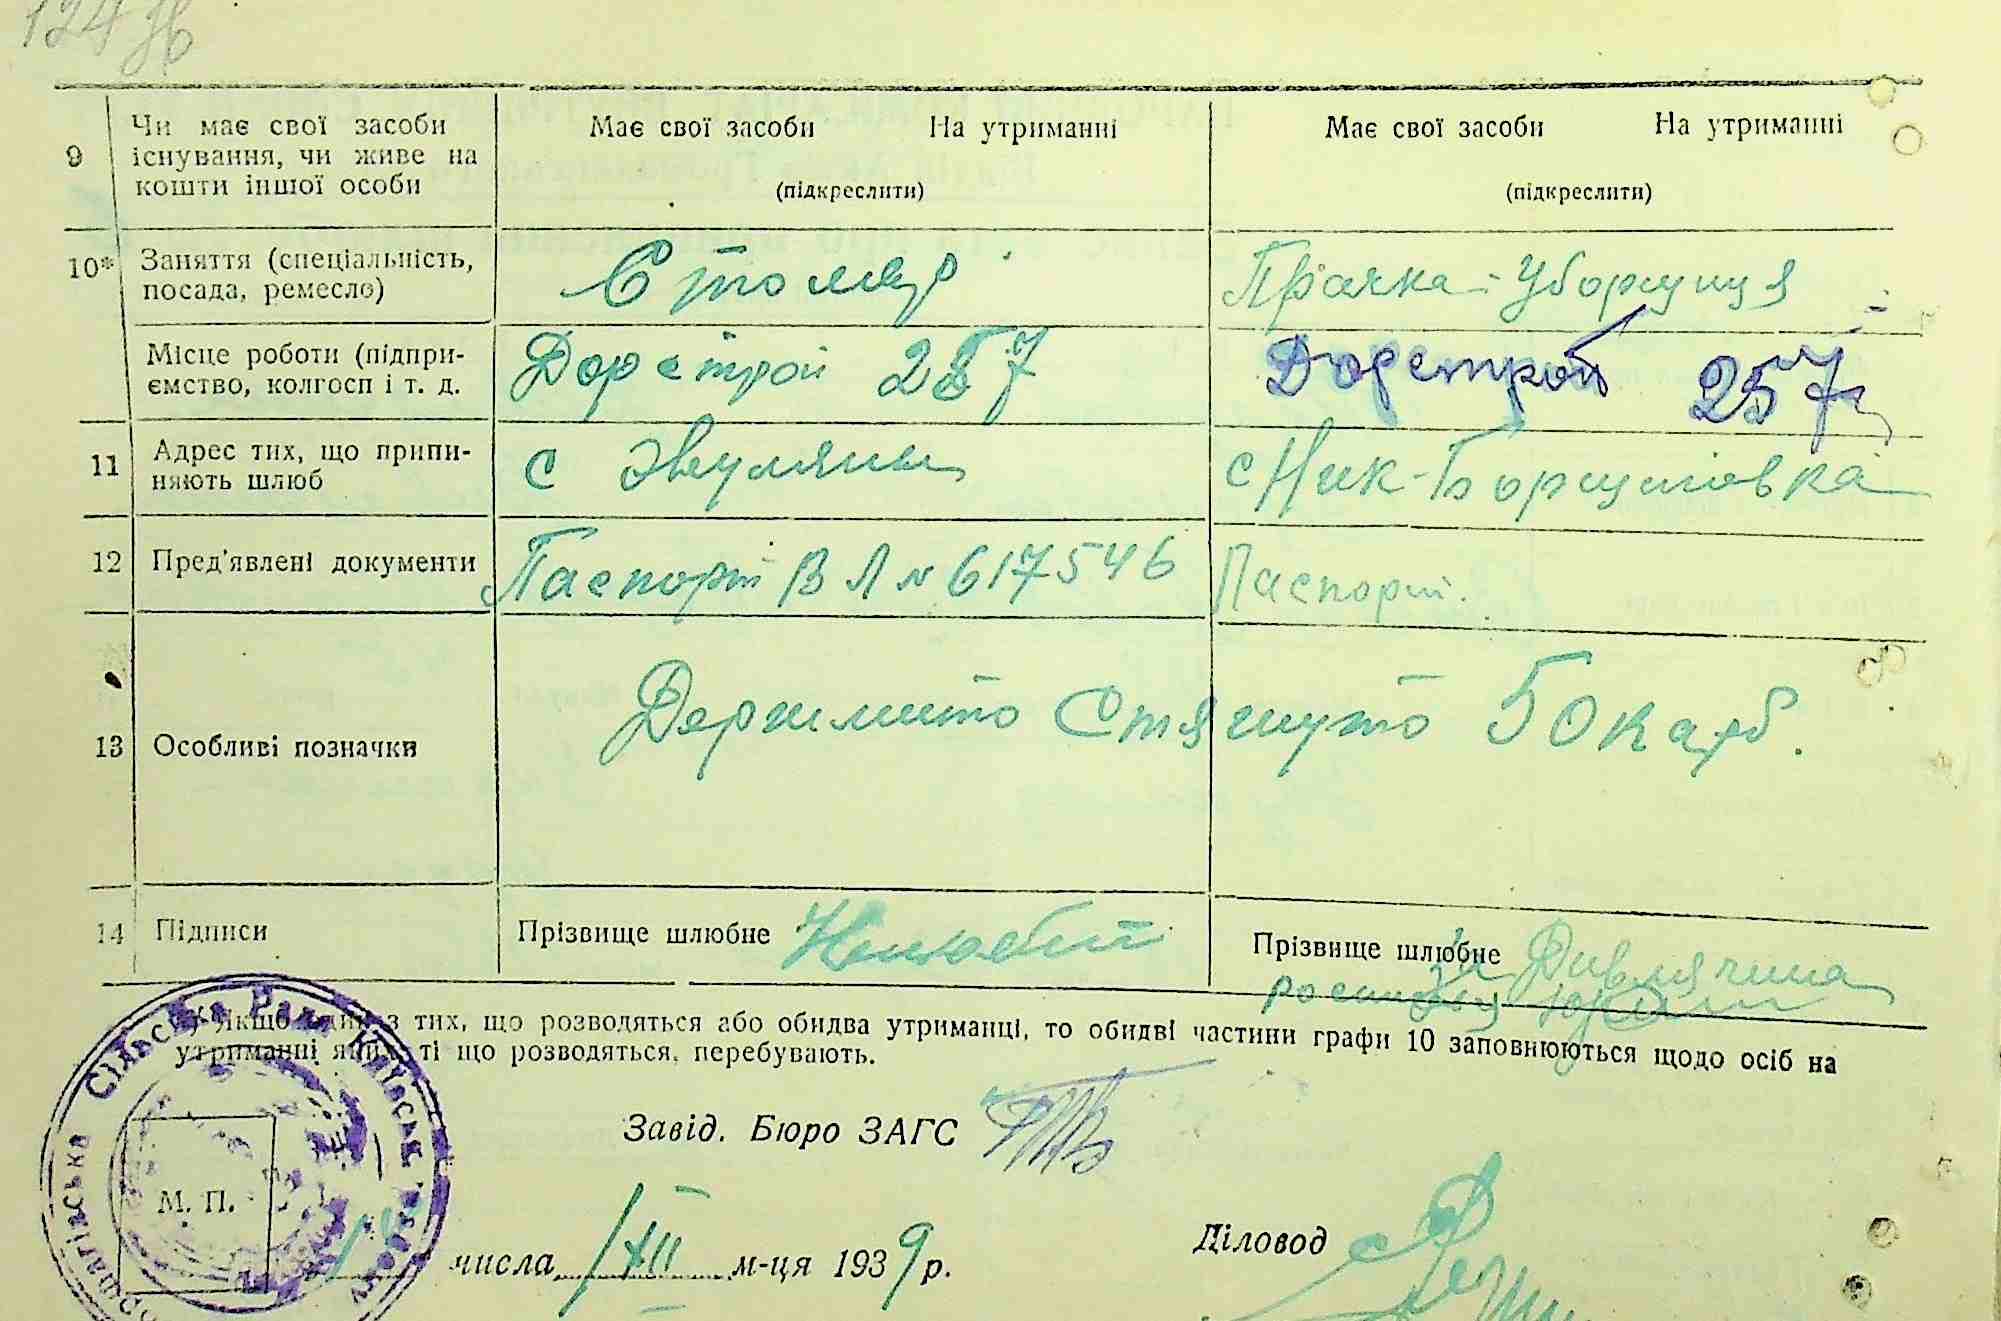 124
9
Чи має свої засоби
існування, чи живе на
кошти іншої особи
Має свої засоби На утриманні
(підкреслити)
Має свої засоби На утриманні
(підкреслити)
10*
Заняття (спеціальність,
посада, ремесло)
Столяр
Прачка-Уборщиця
Місце роботи (підпри-
ємство, колгосп і т. д.
Дорстрой 257
Дорстрой 257
11
Адрес тих, що припи-
няють шлюб
с Жуляны
с Ник-Борщаговка
12
Пред'явлені документи
Паспорт В Л № 617546
Паспорт.
13
Особливі позначки
Держмито Стягнуто 50 карб.
14
Підписи
Прізвище шлюбне
Прізвище шлюбне
*) Якщо один з тих, що розводяться або обидва утриманці, то обидві частини графи 10 заповнюються щодо осіб на
утриманні яких ті що розводяться, перебувають.
Сільська Рада Київськ
М. П.
Завід. Бюро ЗАГС
числа 1/XII м-ця 1939 р.
Діловод